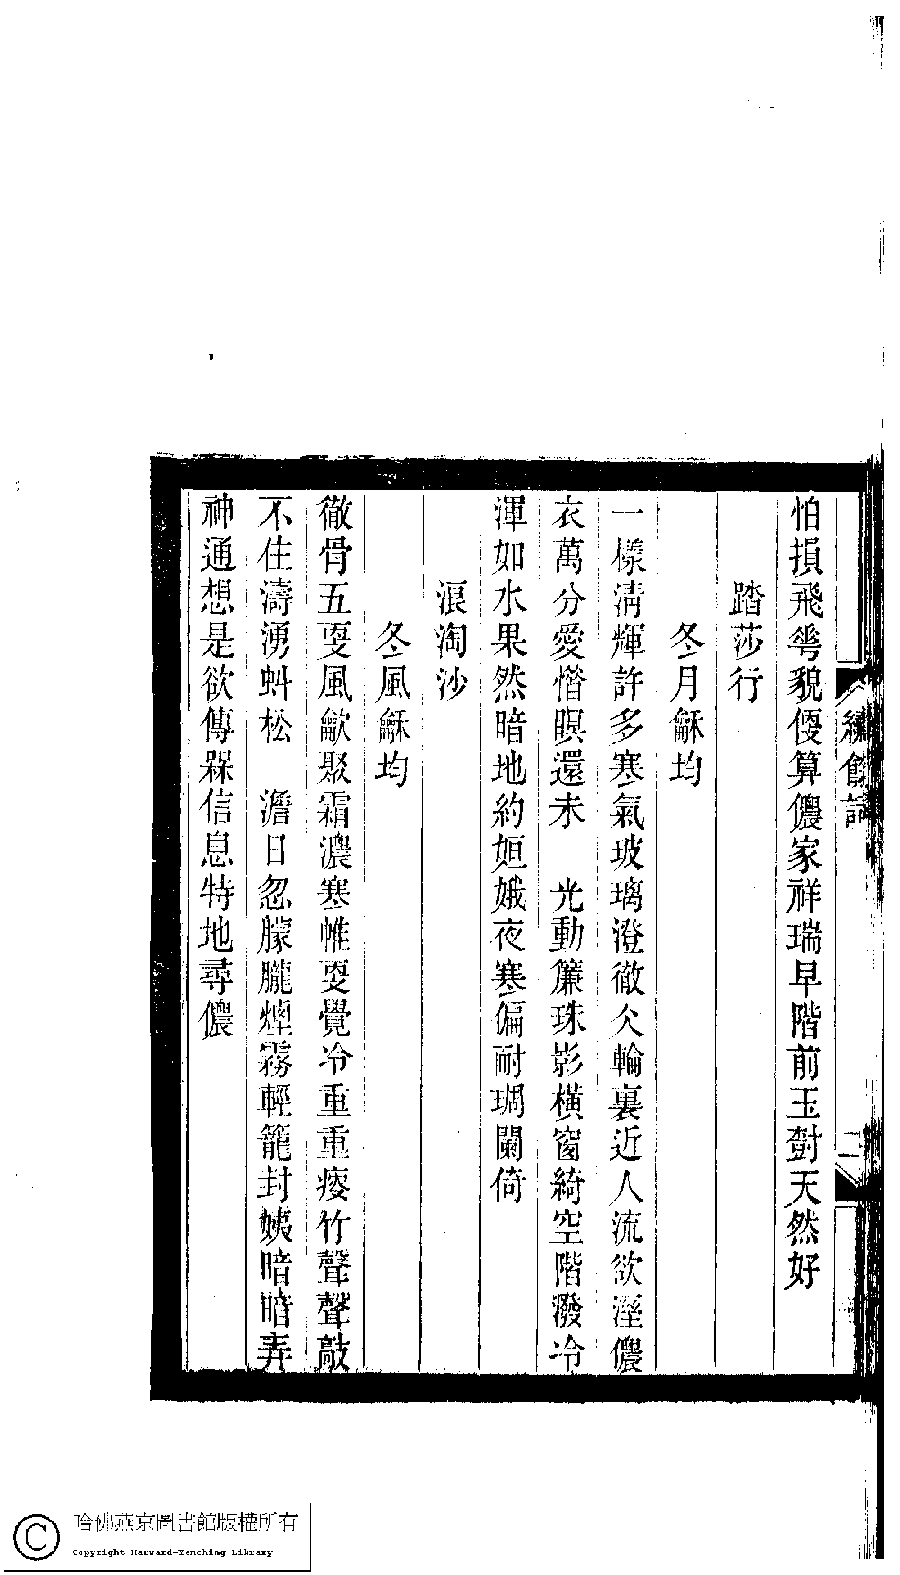 怕損飛雩貌偠算儂家祥瑞早階前玉對天然好
踏莎行
冬月龢均
一樣淸輝許多寒氣玻璃澄徹仌輪裏近人流欲溼儂
衣萬分愛惜瞑還未　光動簾珠影橫窗綺空階潑冷
渾如水果然暗地約姮娥夜寒偏耐琱闌倚
浪淘沙
冬風龢均
徹骨五叓風歙聚霜濃寒帷叓覺冷重重瘦竹聲聲敲
不住濤湧虯松　澹日忽朦朧煙霧輕籠封姨暗暗弄
神通想是欲傳槑信息特地尋儂
繡餘詞
二
哈佛燕京圖書館版權所有
Copyright Harvard-Yenching Library